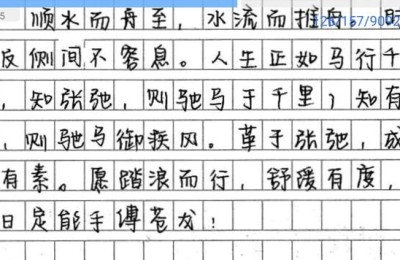 顺水而舟至，水流而推舟，
反侧间不容息。人生正如马行千
，知张弛，则驰马于千里；知有
，则驰马御疾风。革于张弛，成
有素。愿踏浪而行，舒缓有度，
日定能手缚苍龙！